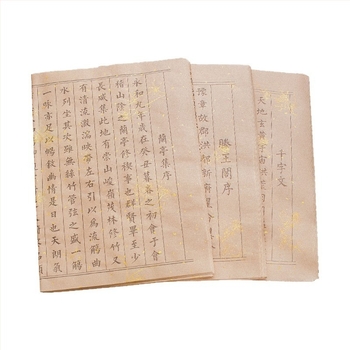 蘭亭集序
永和九年歲在癸丑暮春之初會于會
稽山陰之蘭亭修禊事也群賢畢至少
長咸集此地有崇山峻嶺茂林修竹又
有清流激湍映帶左右引以為流觴曲
水列坐其次雖無絲竹管弦之盛一觴
一詠亦足以暢敘幽情是日也天朗氣
滕王閣序
豫章故郡洪都新府星分
千字文
天地玄黃宇宙洪荒日月